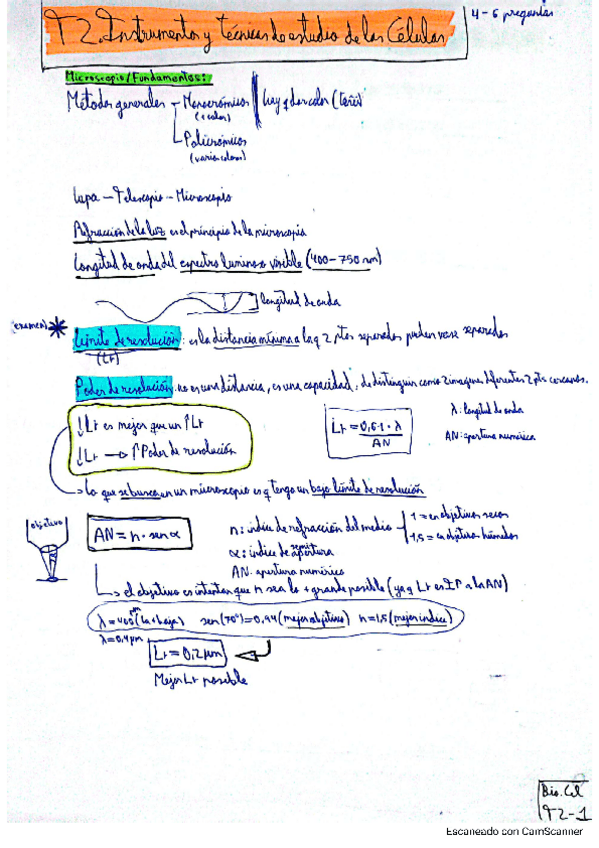 T2. Instrumentos y técnicas de estudio de las Células
4-6 preguntas
Microscopio/Fundamentos:
Métodos generales - Monocrómicos
(1 color)
Policrómicos
(varios colores)
hay q dar color (teñir)
Lupa - Telescopio - Microscopio
Refracción de la luz es el principio de la microscopía
Longitud de onda del espectro luminoso visible (400-750 nm)
longitud de onda
examen *
Límite de resolución: es la distancia mínima a la q 2 ptos separados pueden verse separados
(Lr)
Poder de resolución: no es una distancia, es una capacidad, de distinguir como 2 imágenes diferentes 2 ptos cercanos.
↓Lr es mejor que un ↑Lr
↓Lr → ↑Poder de resolución
Lr = 0,61·λ / AN
λ: longitud de onda
AN: apertura numérica
→ lo que se busca en un microscopio es q tenga un bajo límite de resolución
objetivo
AN = n · sen α
n: índice de refracción del medio
1 = en objetivos secos
1,5 = en objetivos húmedos
α: índice de semi apertura
AN: apertura numérica
→ el objetivo es intentar que n sea lo + grande posible (ya q Lr es IP a la AN)
λ = 400 nm (la + baja) sen(70°) = 0,94 (mejor objetivo) n = 1,5 (mejor índice)
λ = 0,4 μm
Lr = 0,2 μm
Mejor Lr posible
Bio. Cel
T2-1
Escaneado con CamScanner